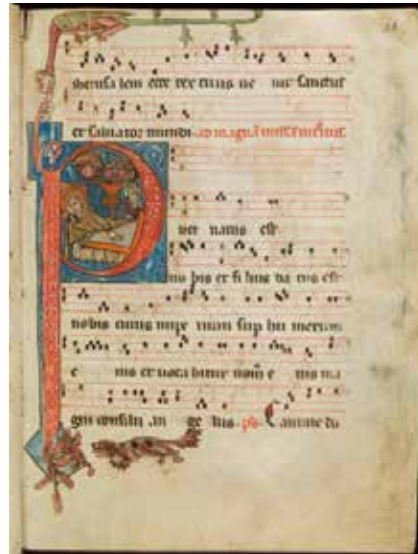 iherusa lem ecce rex tuus ue nit sanctus
et saluator mundi. ad magnā missā
P uer natus est
no bis et fi lius da tus est
nobis cuius impe rium sup hu merum
e ius et uoca bitur nomē e ius ma
gni consilii an ge lus. ps. Cantate do